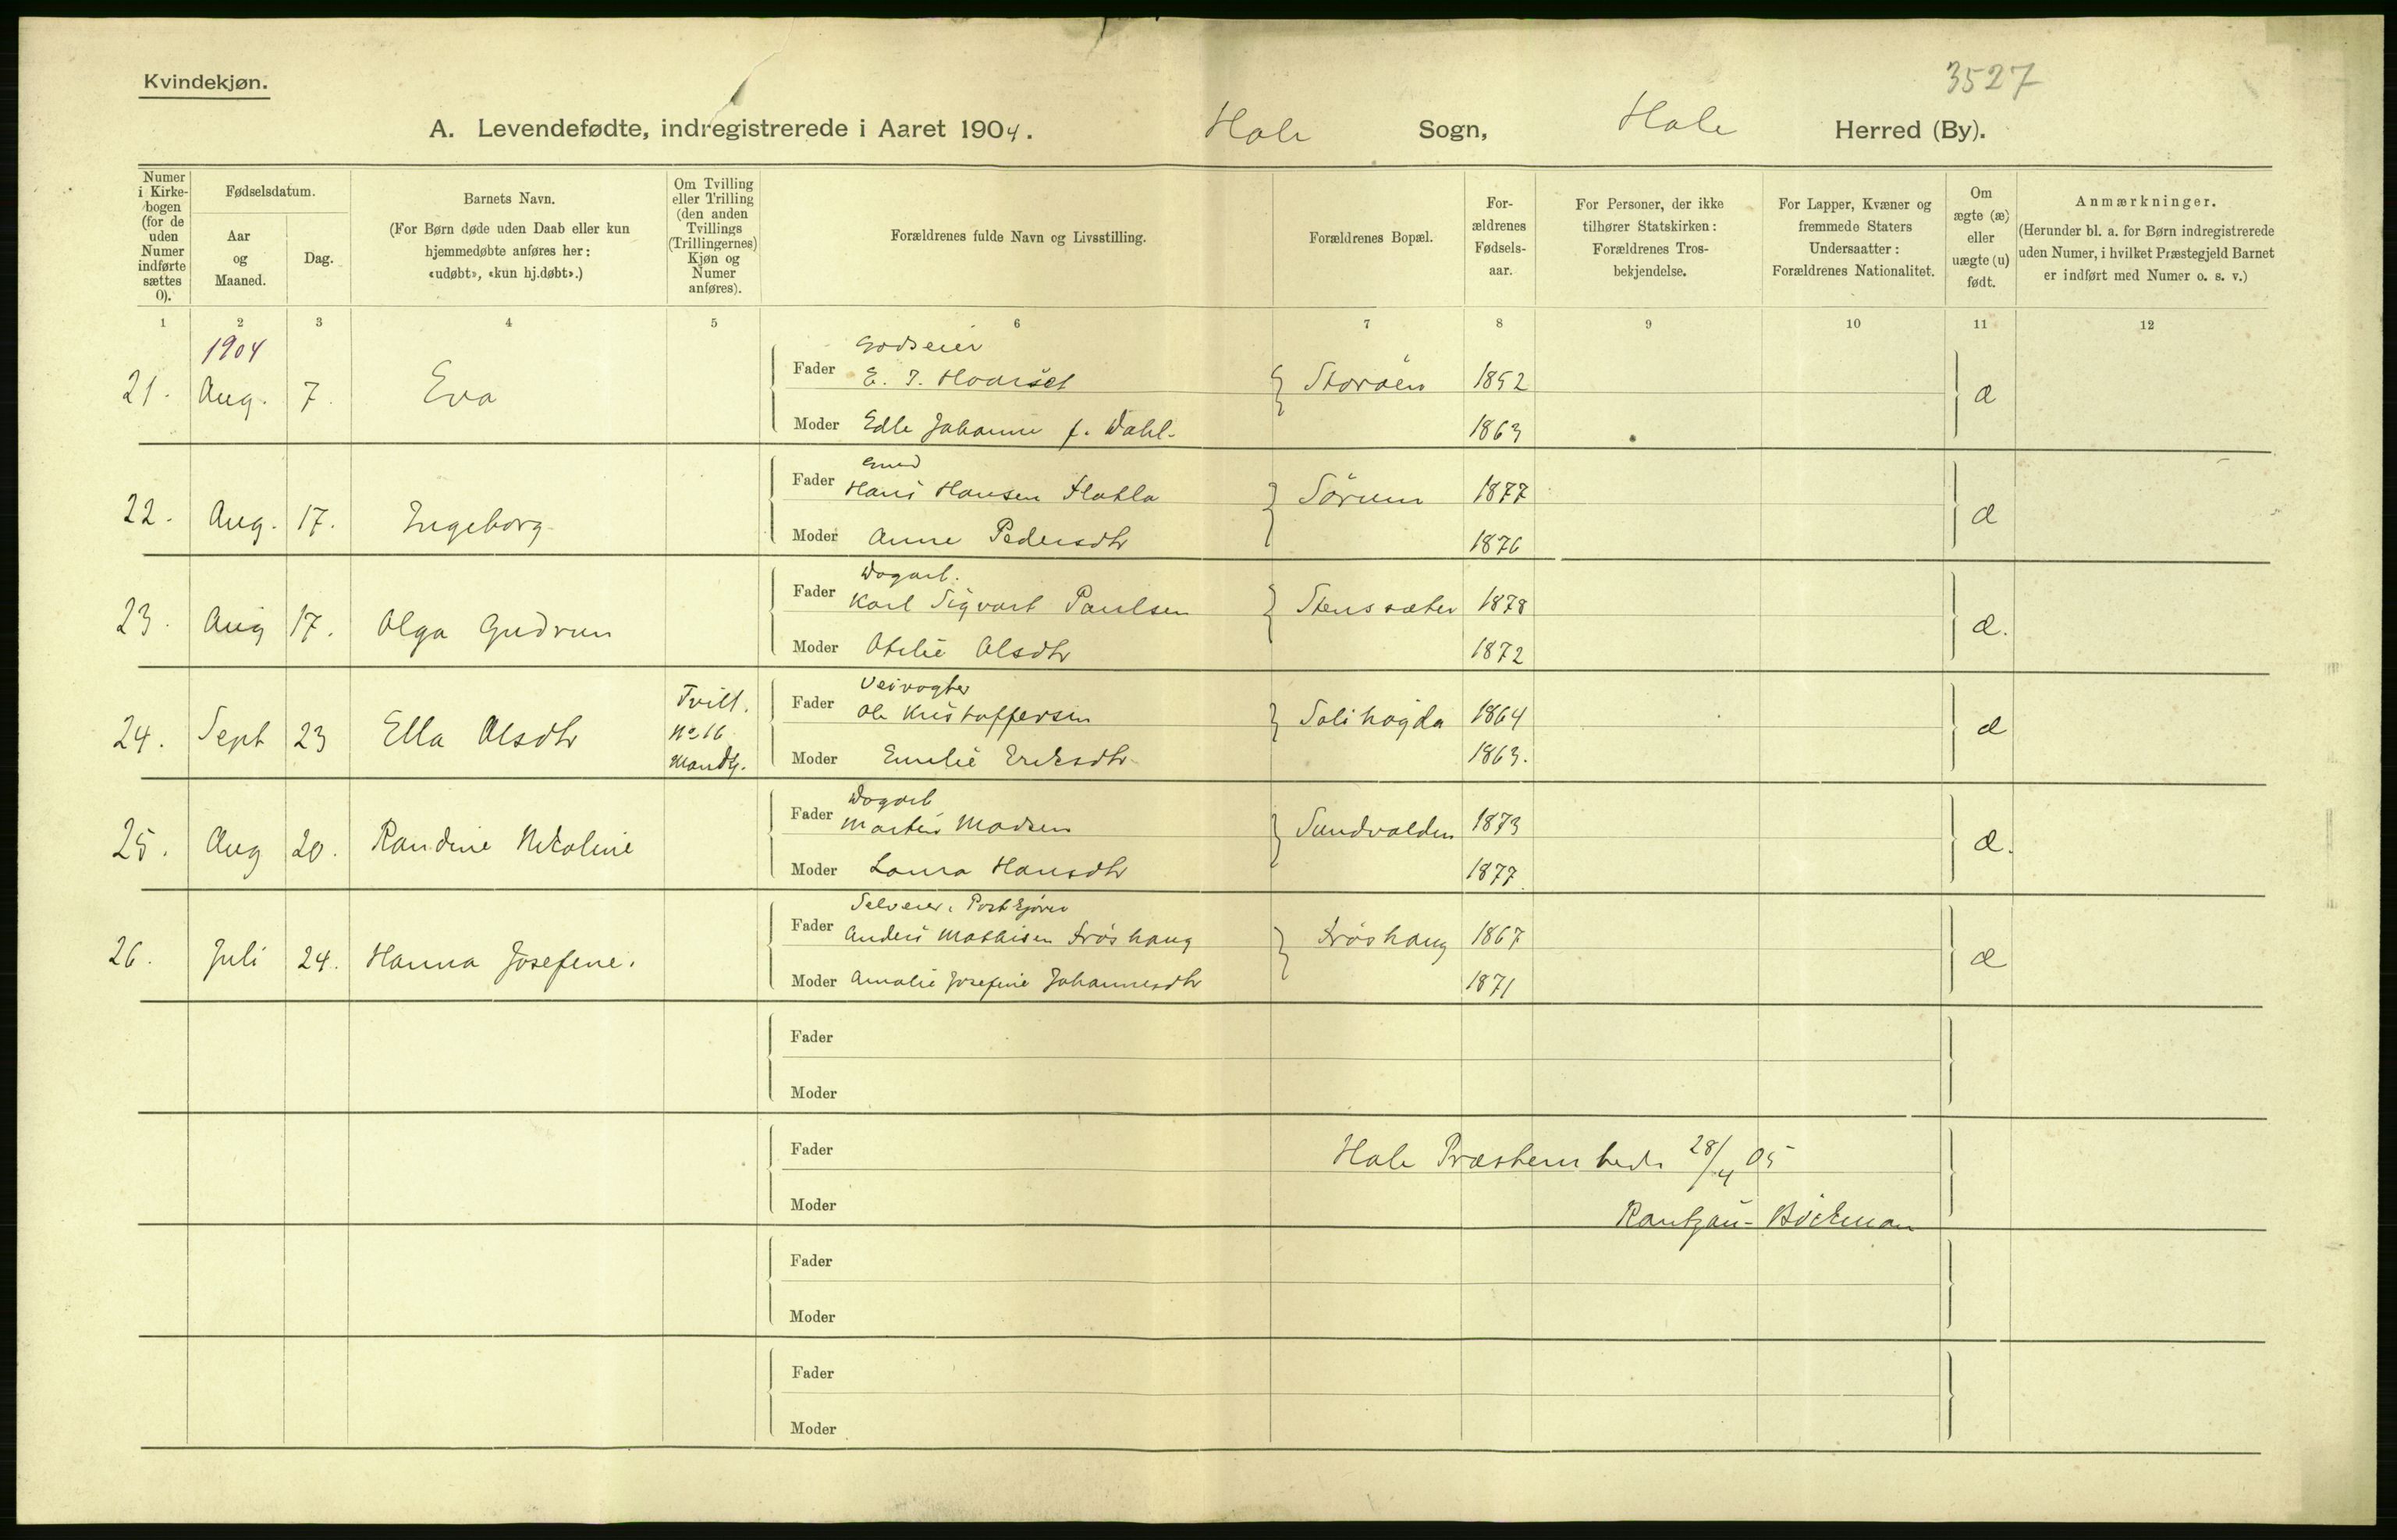 3527
Kvindekjøn.
A. Levendefødte, indregistrerede i Aaret 1904. Hole Sogn, Hole Herred (By).
Numer i Kirkebogen (for de uden Numer indførte sættes 0).
Fødselsdatum.
Aar og Maaned.
Dag.
Barnets Navn.
(For Børn døde uden Daab eller kun
hjemmedøbte anføres her:
«udøbt», «kun hj.døbt».)
Om Tvilling
eller Trilling
(den anden
Tvillings
(Trillingernes)
Kjøn og
Numer
anføres).
Forældrenes fulde Navn og Livsstilling.
Forældrenes Bopæl.
For-
ældrenes
Fødsels-
aar.
For Personer, der ikke
tilhører Statskirken:
Forældrenes Tros-
bekjendelse.
For Lapper, Kvæner og
fremmede Staters
Undersaatter:
Forældrenes Nationalitet.
Om
ægte (æ)
eller
uægte (u)
født.
Anmærkninger.
(Herunder bl. a. for Børn indregistrerede
uden Numer, i hvilket Præstegjeld Barnet
er indført med Numer o. s. v.)
1 2 3 4 5 6 7 8 9 10 11 12
1904
Godseier
21. Aug. 7. Eva Fader E. J. Storöen 1852 æ
Moder Edle Johanne f. Dahl. 1863
22. Aug. 17. Ingeborg Fader Hans Hansen Sörum 1877 æ
Moder Anne Pedersdtr 1876
Dagarb.
23. Aug 17. Olga Gudrun Fader Karl Sigvart Paulsen Stenssæter 1878 æ.
Moder Otelie Olsdtr 1872
Veivogter
24. Sept 23 Ella Olsdtr Tvill. No 16 Mandkj. Fader Ole Kristoffersen Solihøgda 1864 æ
Moder Emelie Eriksdtr 1863.
Dagarb
25. Aug 20. Randine Nikoline Fader Martin Madsen Sundvolden 1873 æ.
Moder Laura Hansdtr 1877
Selveier, Postkjører
26. Juli 24. Hanna Josefine. Fader Anders Mathisen Fröshaug Fröshaug 1867 æ
Moder Amalie Josefine Johannesdtr 1871
Fader
Moder
Fader Hole 28/4 05
Moder Rantzau-Böckman
Fader
Moder
Fader
Moder